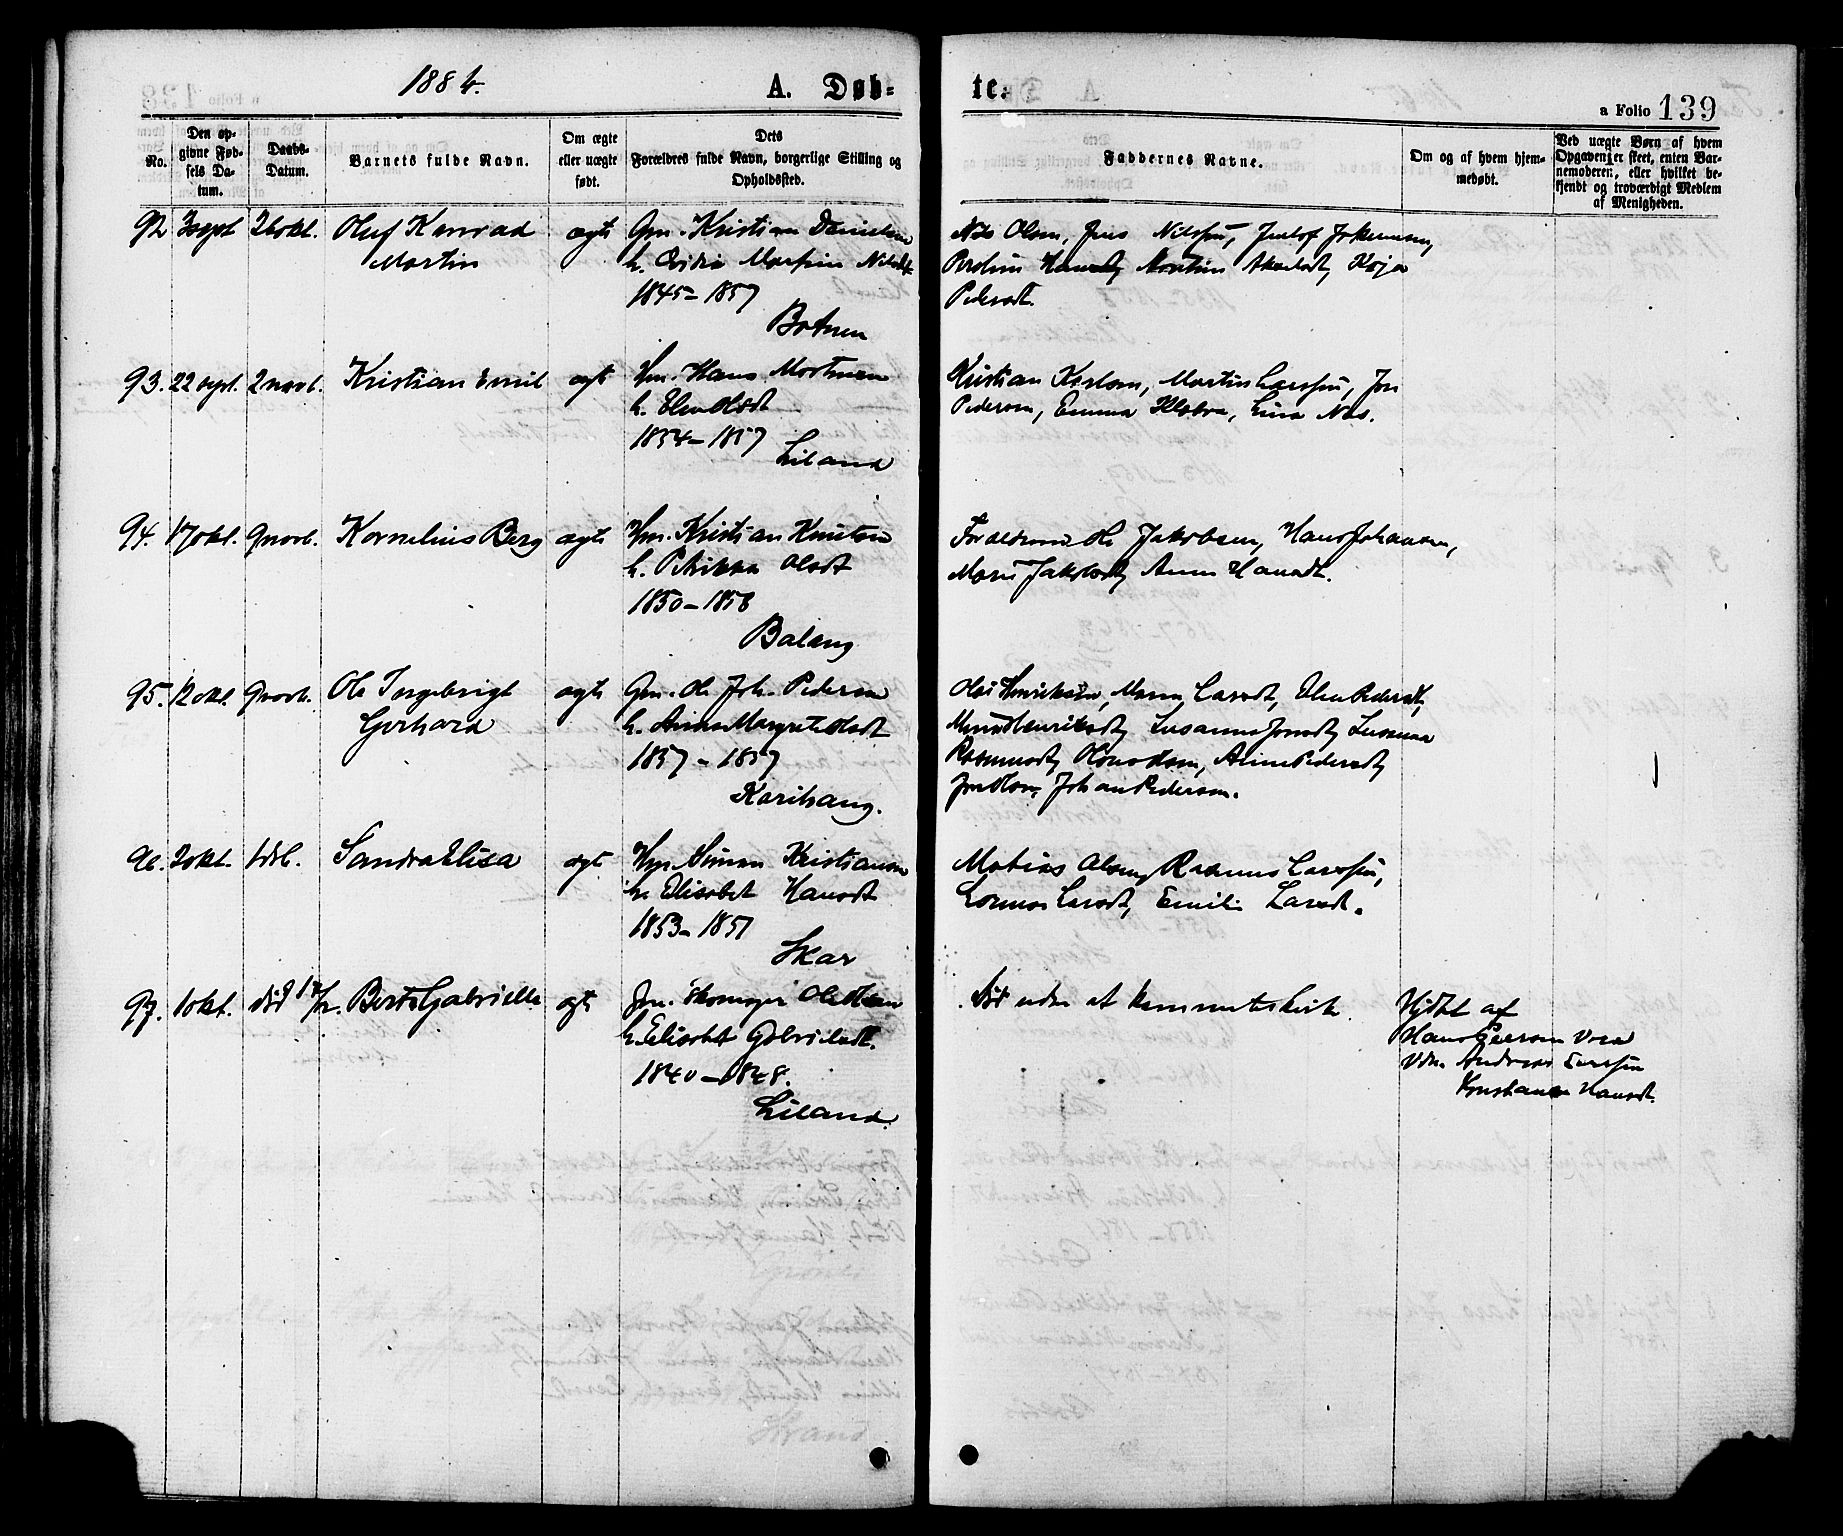 1884.
A. Døb-
te.
a Folio 139
No.
Den op-
givne Fød-
sels Da-
tum.
Daabs-
Datum.
Barnets fulde Navn.
Om ægte
eller uægte
født.
Dets
Forældres fulde Navn, borgerlige Stilling og
Opholdssted.
Faddernes Navne.
Om og af hvem hjem-
medøbt.
Ved uægte Børn af hvem
Opgaven er skeet, enten Bar-
nemoderen, eller hvilket be-
kjendt og troværdigt Medlem
af Menigheden.
92 3 sept 26 okt. Oluf Konrad
Martin
ægte
Gm. Kristian Danielsen
h.
1845-1857
Botnen
Nils Olsen, Jens Nilssen,
Pedersdt.
93. 22 sept. 2 novb. Kristian Emil
ægt
Hm. Hans Mortensen
h. Elen Olsdt
1854-1857
Liland
Kristian Karlsen, Martin Larssen, Jon
Pedersen, Emma Klæboe, Lina Næs.
94. 17 okt. 9 novb. Kornelius Berg
ægte
Hm. Kristian Knutsen
h. Petrikka Olsdt
1850-1858
Balang
Forældrene Ole Jakobsen, Hans Johansen,
Maria Jakobsdt, Anne Hansdt.
95. 12 okt. 9 novb. Ole Ingebrigt
Gerhard
ægte
Gm. Ole Joh. Pedersen
h. Anna Margrete Olsdt
1857-1857
Karihaug.
Olai Henriksen, Maren Larsdt, Elen Pedersdt,
Henriksdt, Susanna Jonsdt, Susanna
Rasmusdt, Hans Olsen, Anne Pedersdt,
Jon Olsen, Johan Pedersen.
96. 2 okt. 1 dcb. Sandra Elisa
ægt.
Hm. Simon Kristiansen
h. Elisabet Hansdt
1853-1851
Skar
Matias Olsen, Rasmus Larssen,
Larsdt, Emilie Larsdt.
97. 1 okt. død Berte Gabrielle
ægte
Ole Olsen
h. Elisabet Gabrielsdt.
1840-1848.
Liland.
Død uden at komme til kirke
Hjdbt af
Hans Peersen
Vdn. Andreas Larssen
Konstanse Hansdt.